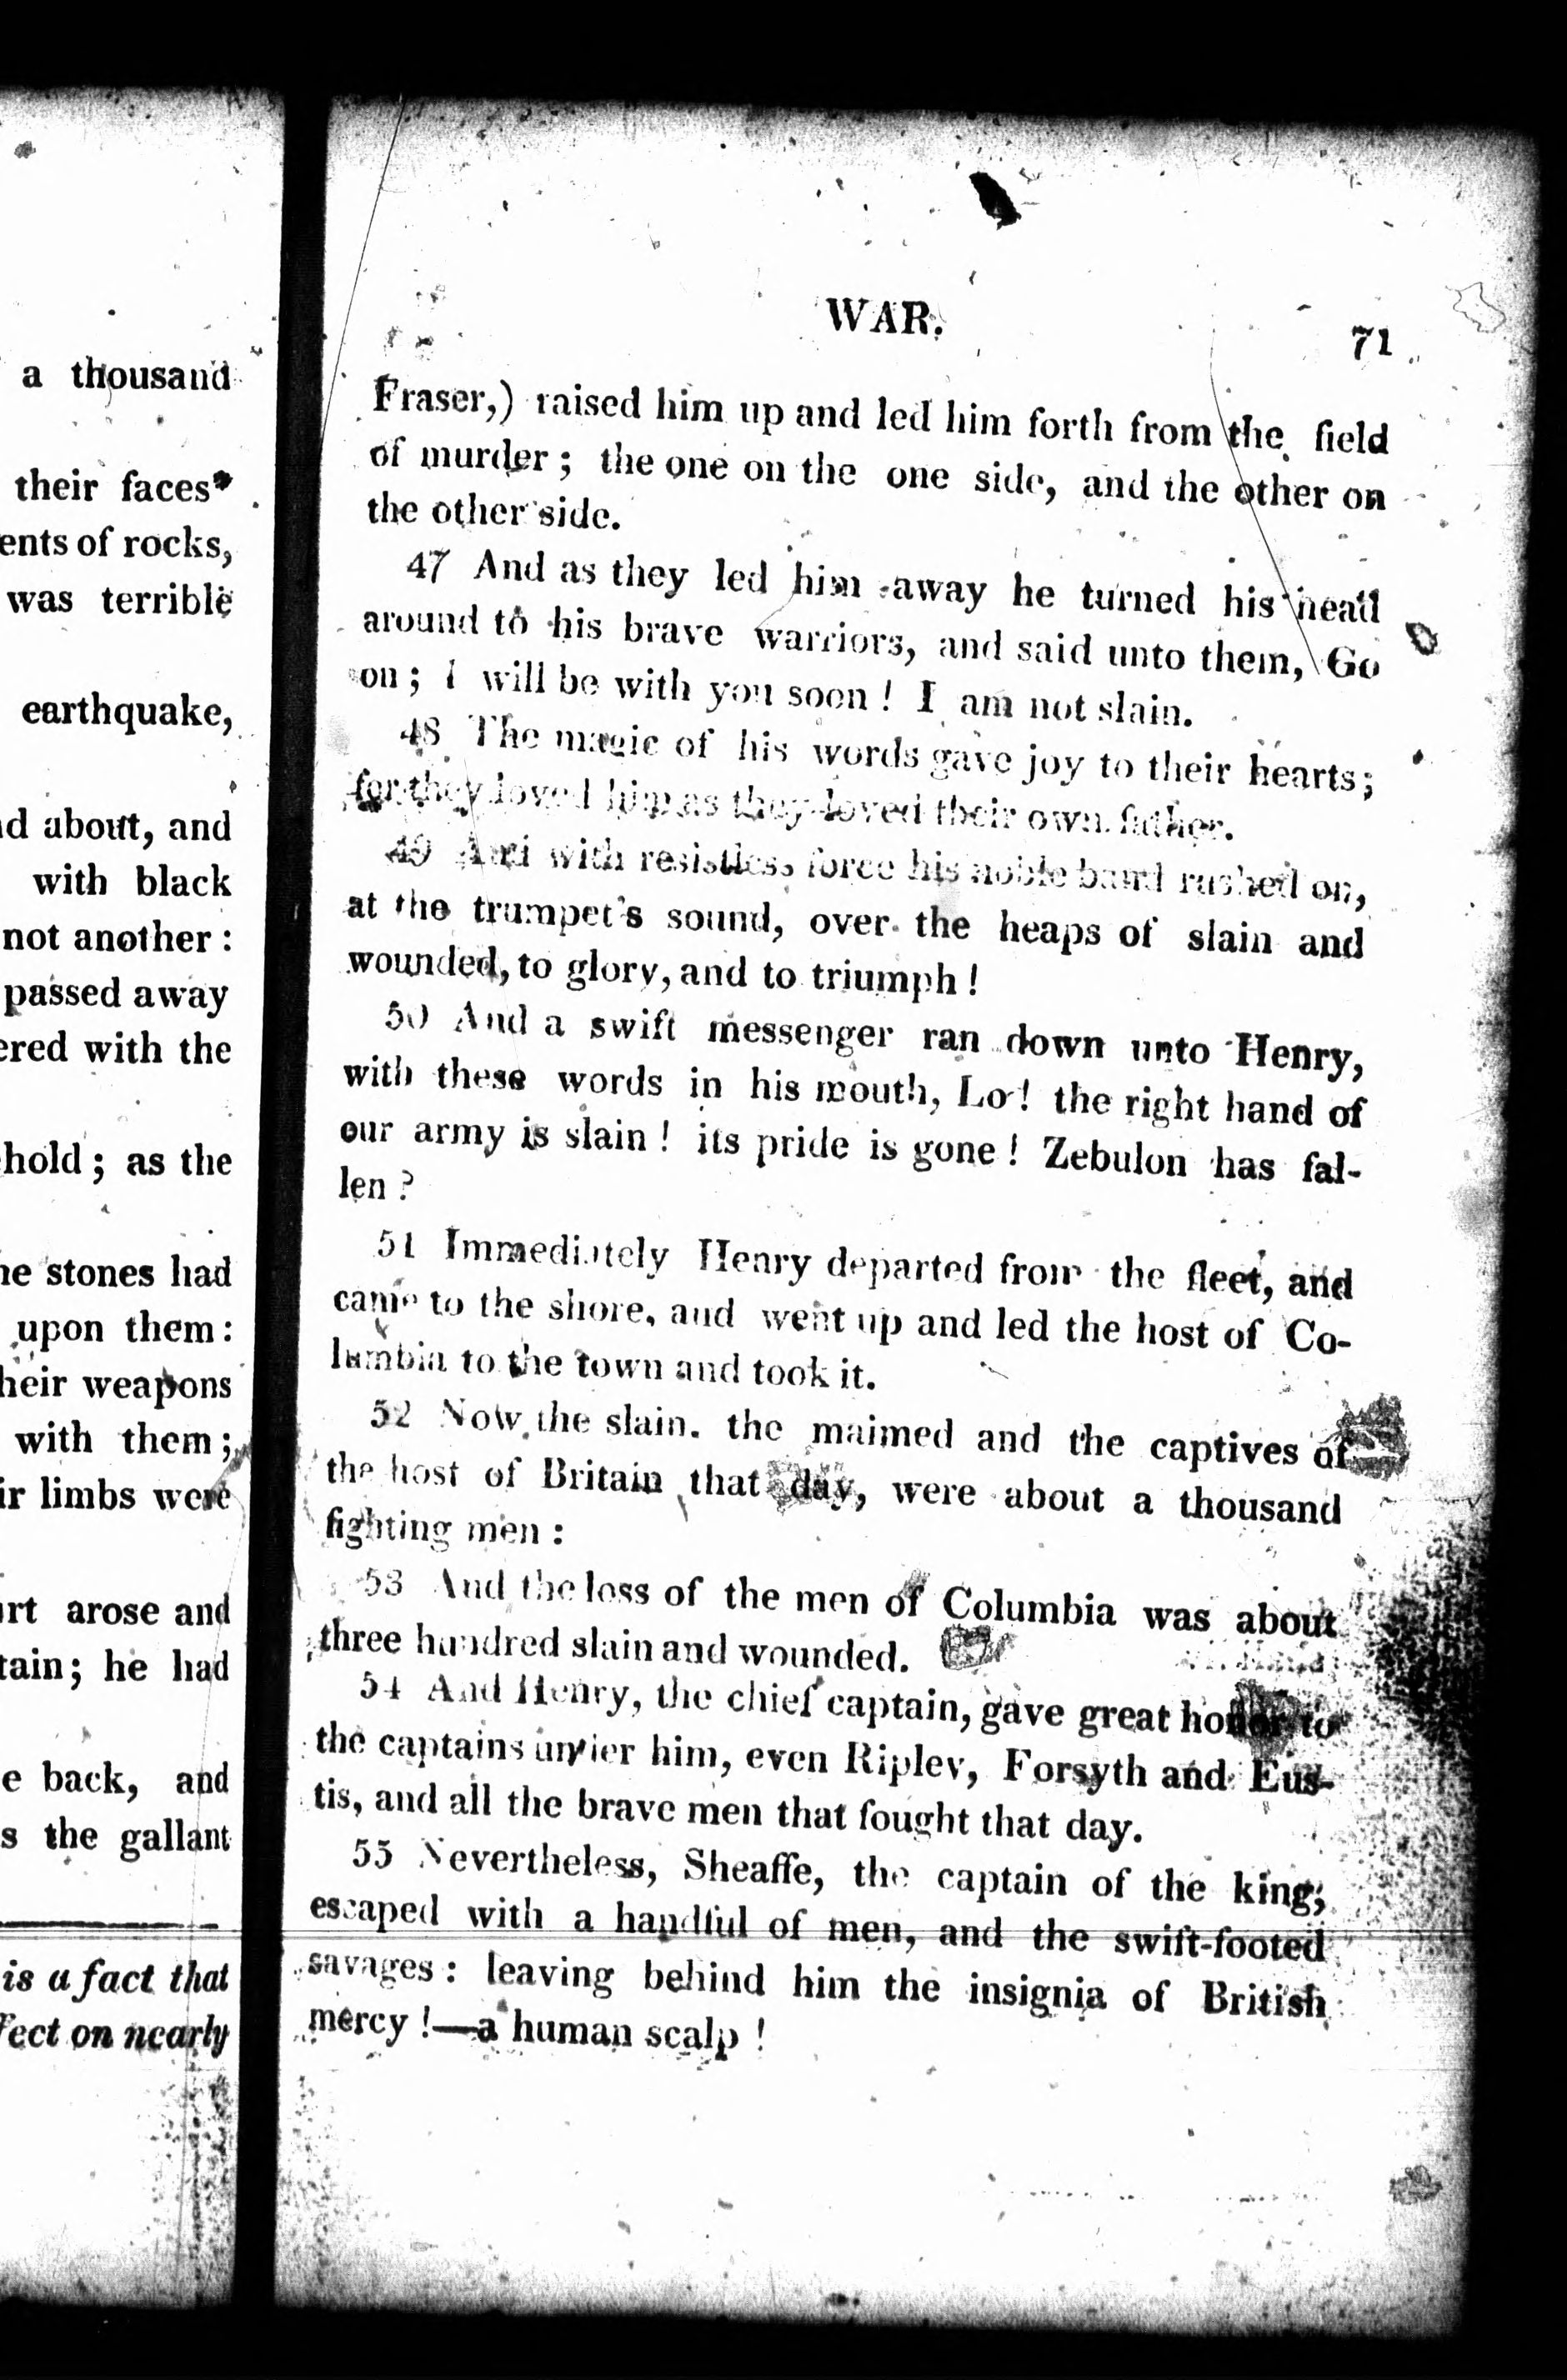 a thousand
their faces*
ents of rocks,
was terrible
earthquake,
d about, and
with black
not another :
passed away
ered with the
hold ; as the
he stones had
upon them :
heir weapons
with them ;
ir limbs were
art arose and
tain ; he had
e back, and
s the gallant
is a fact that
fect on nearly
WAR.
71
Fraser,) raised him up and led him forth from the field
of murder ; the one on the one side, and the other on
the other side.
47 And as they led him away he turned his head
around to his brave warriors, and said unto them, Go
on ; I will be with you soon ! I am not slain.
48 The magic of his words gave joy to their hearts ;
for they loved him as they loved their own father.
49 And with resistless force his noble band rushed on,
at the trumpet's sound, over the heaps of slain and
wounded, to glory, and to triumph !
50 And a swift messenger ran down unto Henry,
with these words in his mouth, Lo ! the right hand of
our army is slain ! its pride is gone ! Zebulon has fal-
len ?
51 Immediately Henry departed from the fleet, and
came to the shore, and went up and led the host of Co-
lumbia to the town and took it.
52 Now the slain. the maimed and the captives of
the host of Britain that day, were about a thousand
fighting men :
53 And the loss of the men of Columbia was about
three hundred slain and wounded.
54 And Henry, the chief captain, gave great honor to
the captains under him, even Ripley, Forsyth and Eus-
tis, and all the brave men that fought that day.
55 Nevertheless, Sheaffe, the captain of the king,
escaped with a handful of men, and the swift-footed
savages : leaving behind him the insignia of British
mercy !—a human scalp !